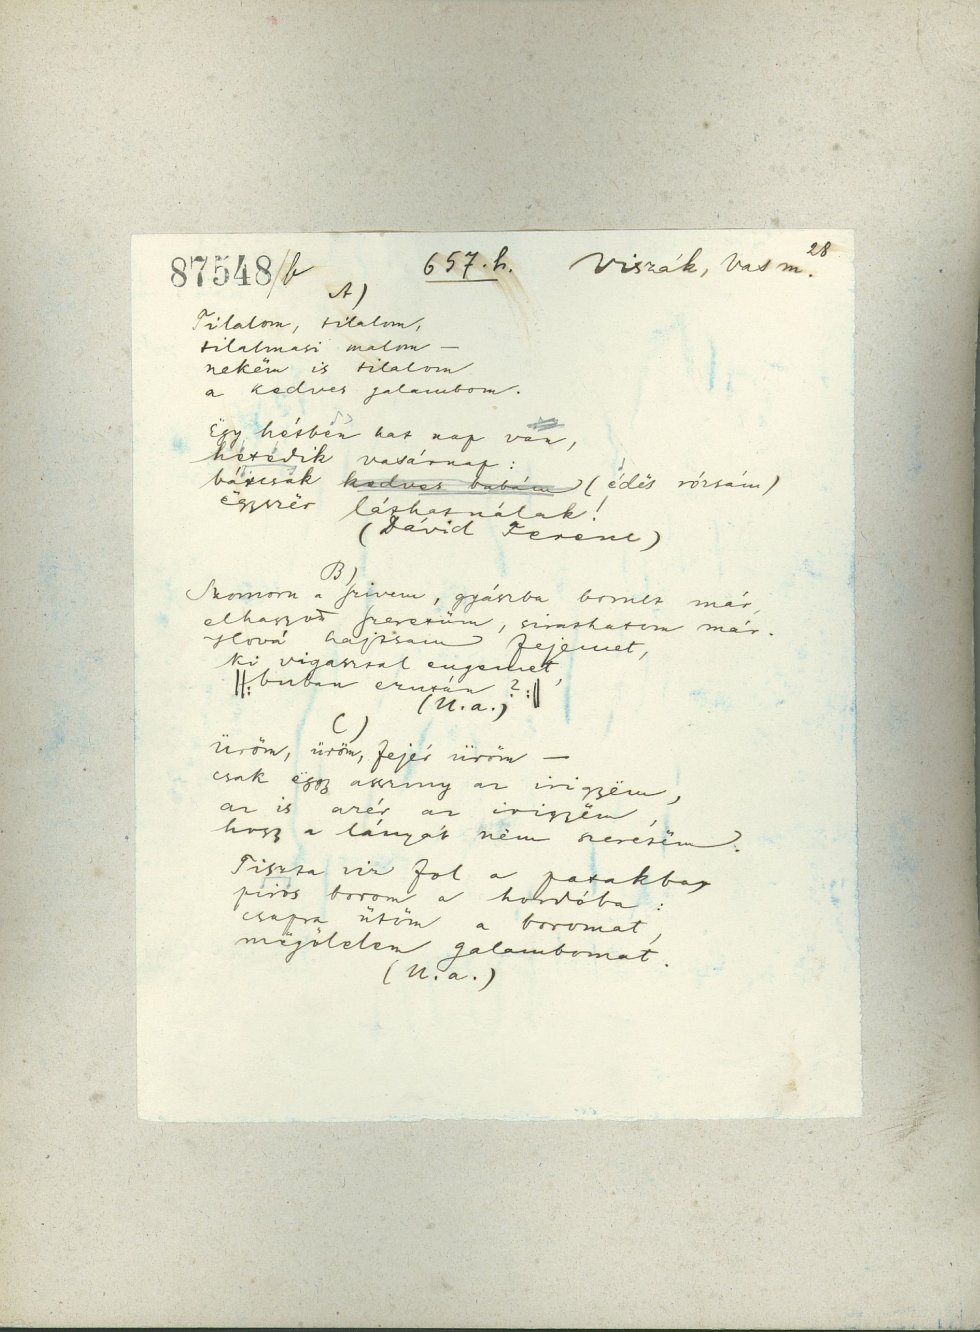 87548/b 657.h. Viszák, Vas m. 28
A)
Tilalom, tilalom,
tilalmasi malom —
nekëm is tilalom
a kedves galambom.
Ëgy hétbën hat nap van,
hetedik vasárnap:
bátcsak kedves babám (édës rózsám)
ëgyszër láthatnálak!
(Dávid Ferenc)
B)
Szomorú a szivem, gyászba borult már,
elhagyott szeretőm, sirathatom már.
Hová hajtsam fejemet,
ki vigasztal engemet,
||: buban ezután?:||
(U.a.)
C)
Üröm, üröm, fejér üröm —
csak ëggy asszony az irigyëm,
az is azér az irigyëm,
hogy a lányát nëm szeretëm.
Tiszta viz fol a patakba,
piros borom a hordóba:
csapra ütöm a boromat,
mëgölelem galambomat.
(U.a.)